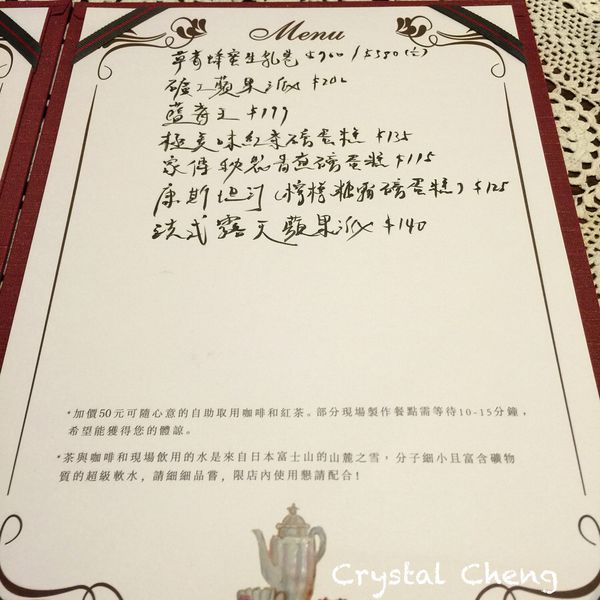 Menu
草莓蜂蜜生乳卷 $
礦工蘋果派 $
藍莓王 $199
極美味紅莓磅蛋糕 $135
家傳秘 蕉磅蛋糕 $115
康斯坦汀(檸檬糖霜磅蛋糕) $125
法式露天蘋果派 $140
*加價50元可隨心意的自助取用咖啡和紅茶。部分現場製作餐點需等待10-15分鐘,
希望能獲得您的體諒。
*茶與咖啡和現場飲用的水是來自日本富士山的山麓之雪,分子細小且富含礦物
質的超級軟水,請細細品嘗,限店內使用懇請配合!
Crystal Cheng